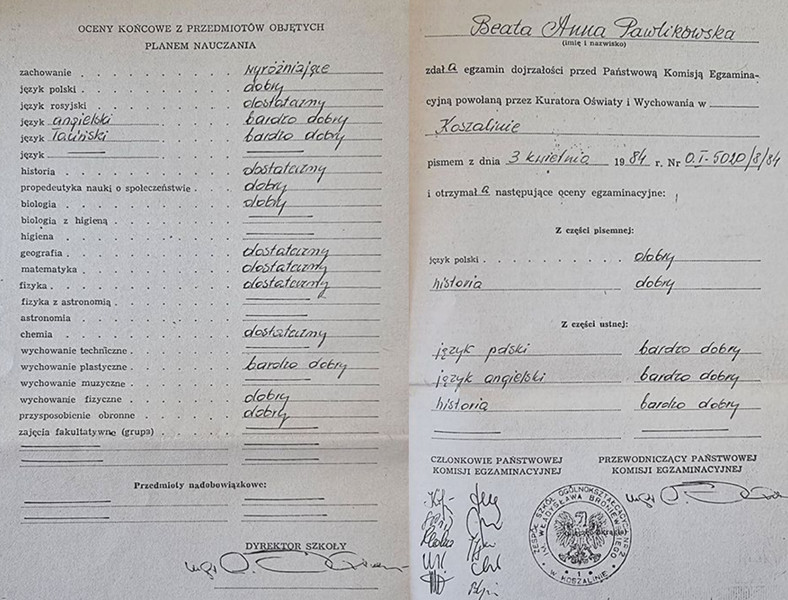 OCENY KOŃCOWE Z PRZEDMIOTÓW OBJĘTYCH
PLANEM NAUCZANIA
zachowanie wyróżniające
język polski dobry
język rosyjski dostateczny
język angielski bardzo dobry
język łaciński bardzo dobry
język
historia dostateczny
propedeutyka nauki o społeczeństwie dobry
biologia dobry
biologia z higieną
higiena
geografia dostateczny
matematyka dostateczny
fizyka dostateczny
fizyka z astronomią
astronomia
chemia dostateczny
wychowanie techniczne
wychowanie plastyczne bardzo dobry
wychowanie muzyczne
wychowanie fizyczne dobry
przysposobienie obronne dobry
zajęcia fakultatywne (grupa)
Przedmioty nadobowiązkowe:
DYREKTOR SZKOŁY
mgr
Beata Anna Pawlikowska
(imię i nazwisko)
zdała egzamin dojrzałości przed Państwową Komisją Egzamina-
cyjną powołaną przez Kuratora Oświaty i Wychowania w
Koszalinie
pismem z dnia 3 kwietnia 1984 r. Nr O.I-5020/8/84
i otrzymała następujące oceny egzaminacyjne:
Z części pisemnej:
język polski dobry
historia dobry
Z części ustnej:
język polski bardzo dobry
język angielski bardzo dobry
historia bardzo dobry
CZŁONKOWIE PAŃSTWOWEJ
KOMISJI EGZAMINACYJNEJ
PRZEWODNICZĄCY PAŃSTWOWEJ
KOMISJI EGZAMINACYJNEJ
mgr
ZESPÓŁ SZKÓŁ OGÓLNOKSZTAŁCĄCYCH
IM. WŁADYSŁAWA BRONIEWSKIEGO
W KOSZALINIE
1